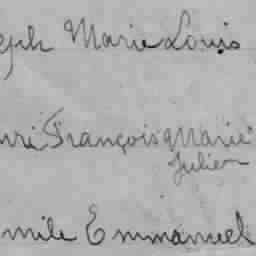 eph Marie Louis
nri François Marie
Julien
mile Emmanuel